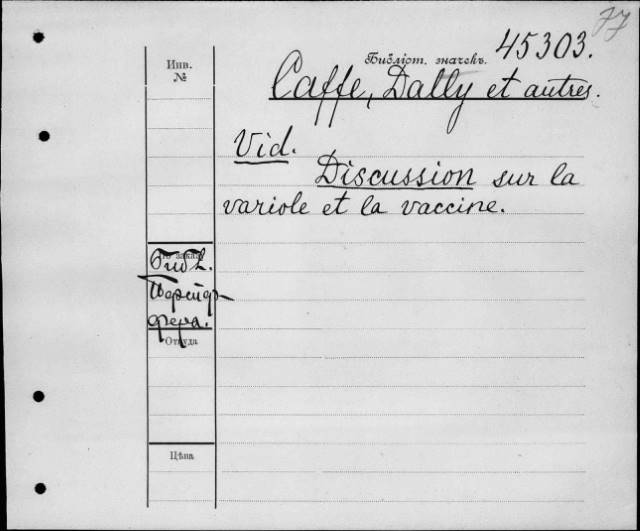 77
Инв.
№
Библіот. значекъ.
45303.
Caffe, Dally et autres.
Vid.
Discussion sur la
variole et la vaccine.
№ заказа
Библ.
Отъуда
Цѣна